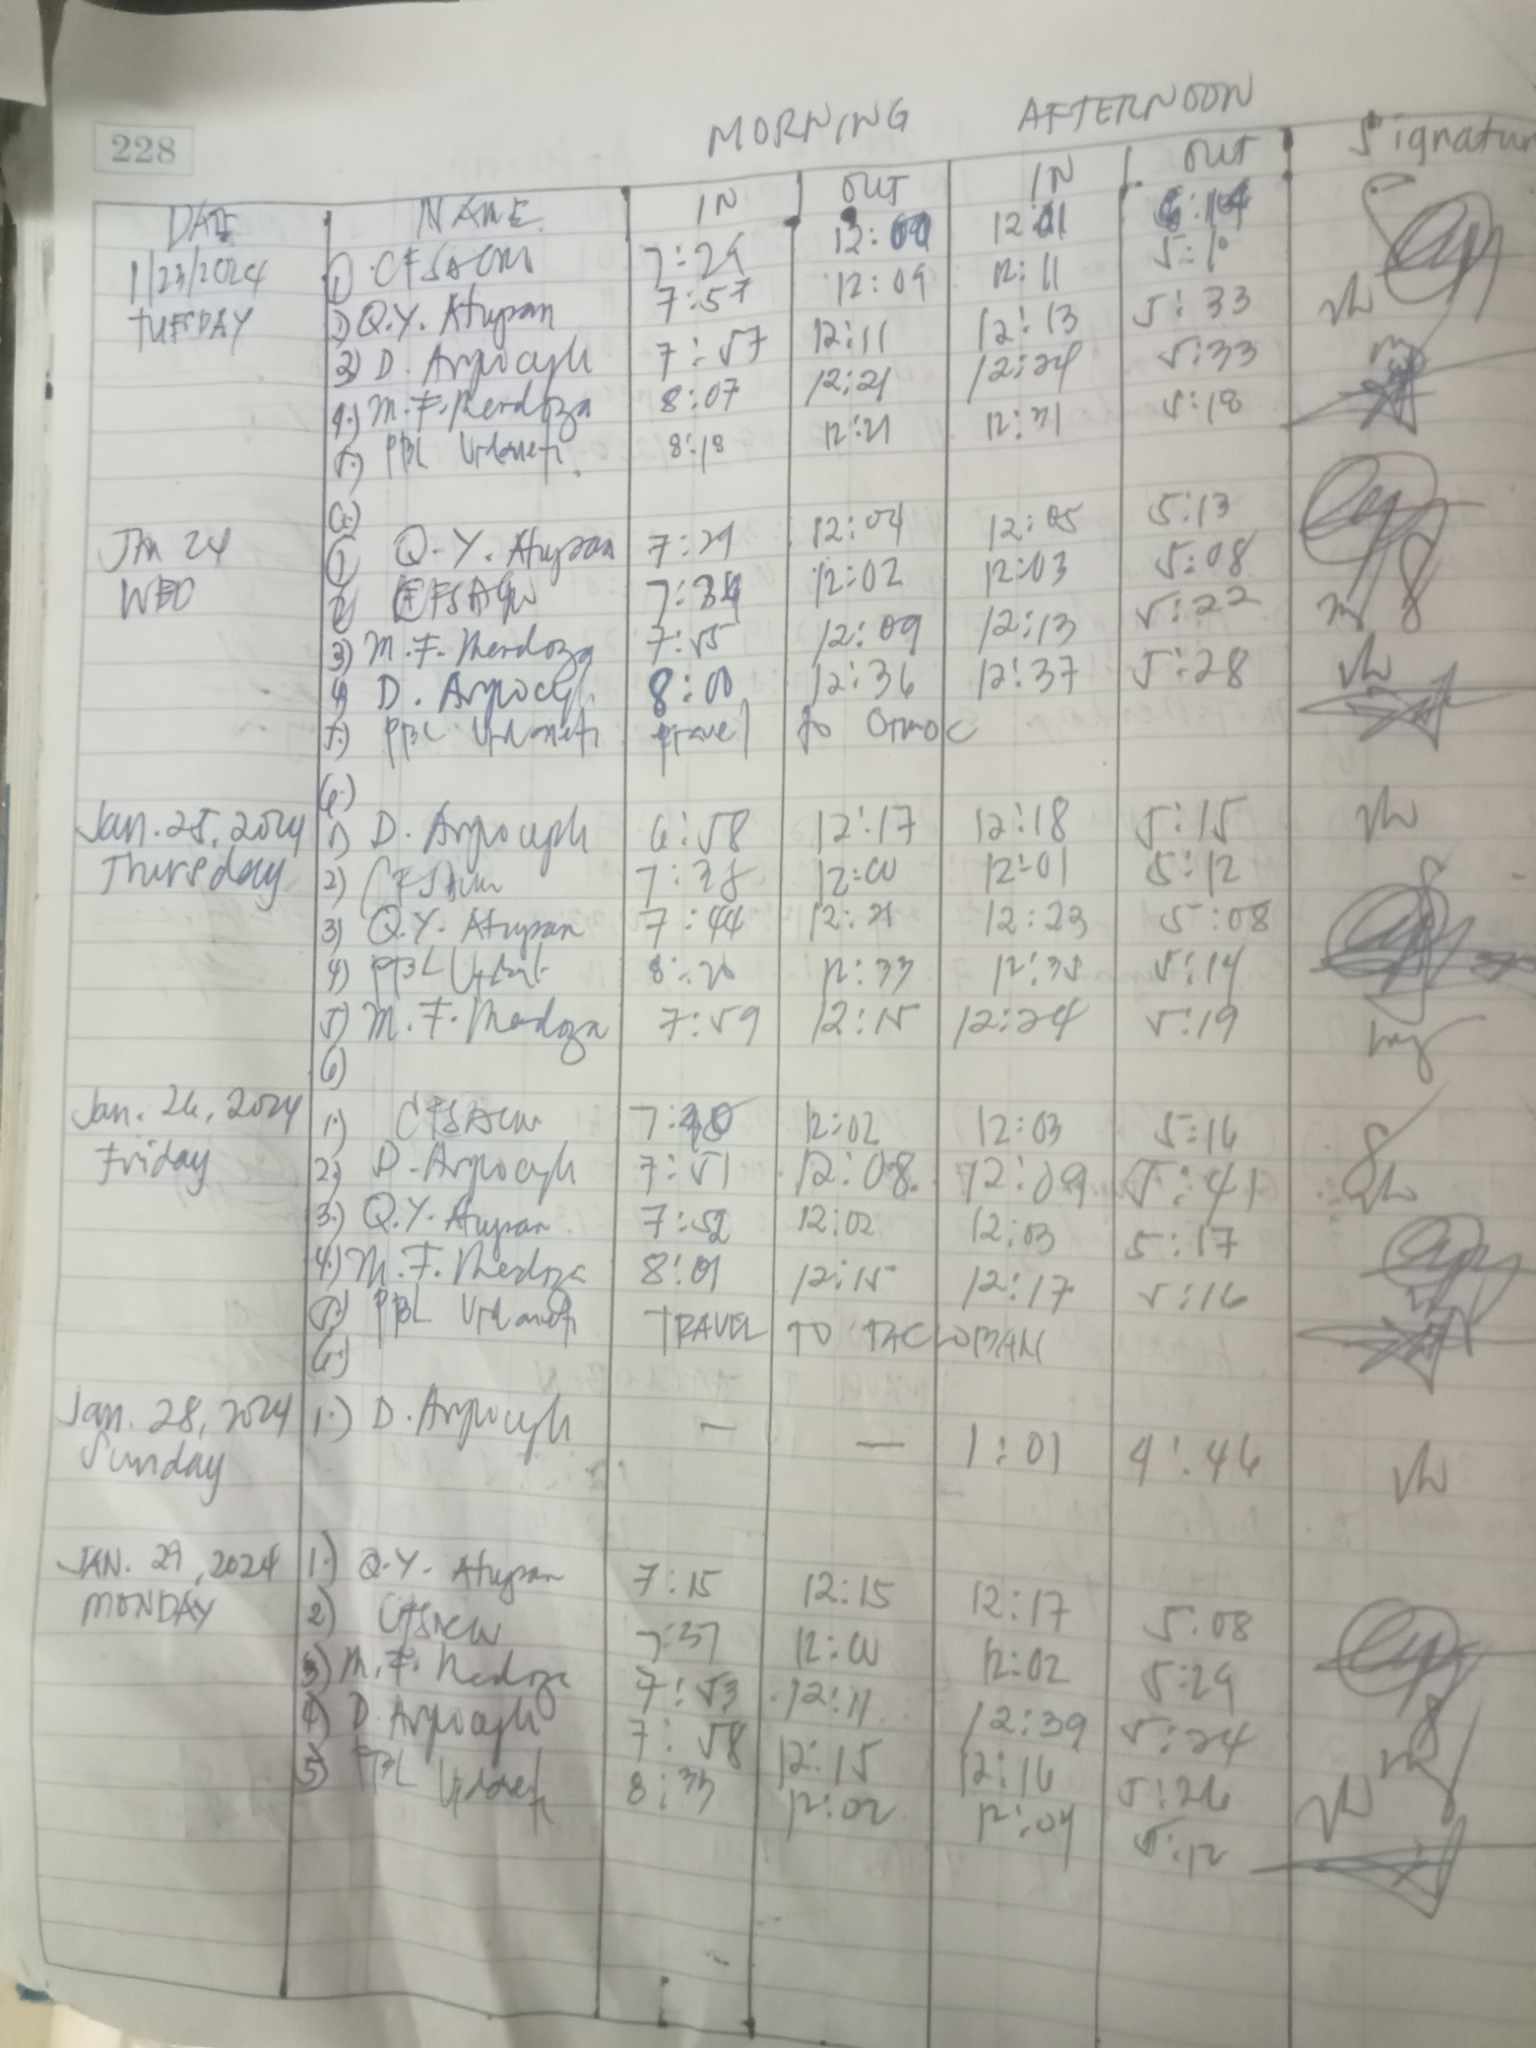 228
MORNING AFTERNOON
DATE NAME IN OUT IN OUT Signatur
1/23/2024 1) CFSACW 7:29 12:00 12:01 5:10
TUESDAY 2) Q.Y. Atupan 7:57 12:09 12:11 5:33
3) D. 7:57 12:11 12:13 5:33
4.) M.F. Mendoza 8:07 12:21 12:24 5:18
5.) PBL 8:18 12:21 12:31
6.)
JAN 24 1) Q.Y. Atupan 7:29 12:04 12:05 5:13
WED 2) CFSACW 12:02 12:03 5:08
3) M.F. Mendoza 7:55 12:09 12:13 5:22
4) D. 8:00 12:36 12:37 5:28
5.) PBL travel to Ormoc
6.)
Jan. 25, 2024 1) D. 6:58 12:17 12:18 5:15
Thursday 2) CFSACW 7:38 12:00 12:01 5:12
3) Q.Y. Atupan 7:44 12:21 12:23 5:08
4) PBL 8:20 12:33 12:35 5:14
5) M.F. Mendoza 7:59 12:15 12:24 5:19
6)
Jan. 26, 2024 1.) CFSACW 12:02 12:03 5:16
Friday 2.) D. 7:51 12:08 12:09 5:41
3.) Q.Y. Atupan 7:52 12:02 12:03 5:17
4.) M.F. Mendoza 8:01 12:15 12:17 5:16
5.) PBL TRAVEL TO TACLOBAN
6.)
Jan. 28, 2024 1.) D. — — 1:01 4:46
Sunday
JAN. 29, 2024 1.) Q.Y. Atupan 7:15 12:15 12:17 5:08
MONDAY 2) CFSACW 7:37 12:00 12:02 5:29
3) M.F. Mendoza 7:53 12:11 12:39 5:24
4) D. 7:58 12:15 12:16 5:26
5) PBL 8:33 12:02 12:04 5:12